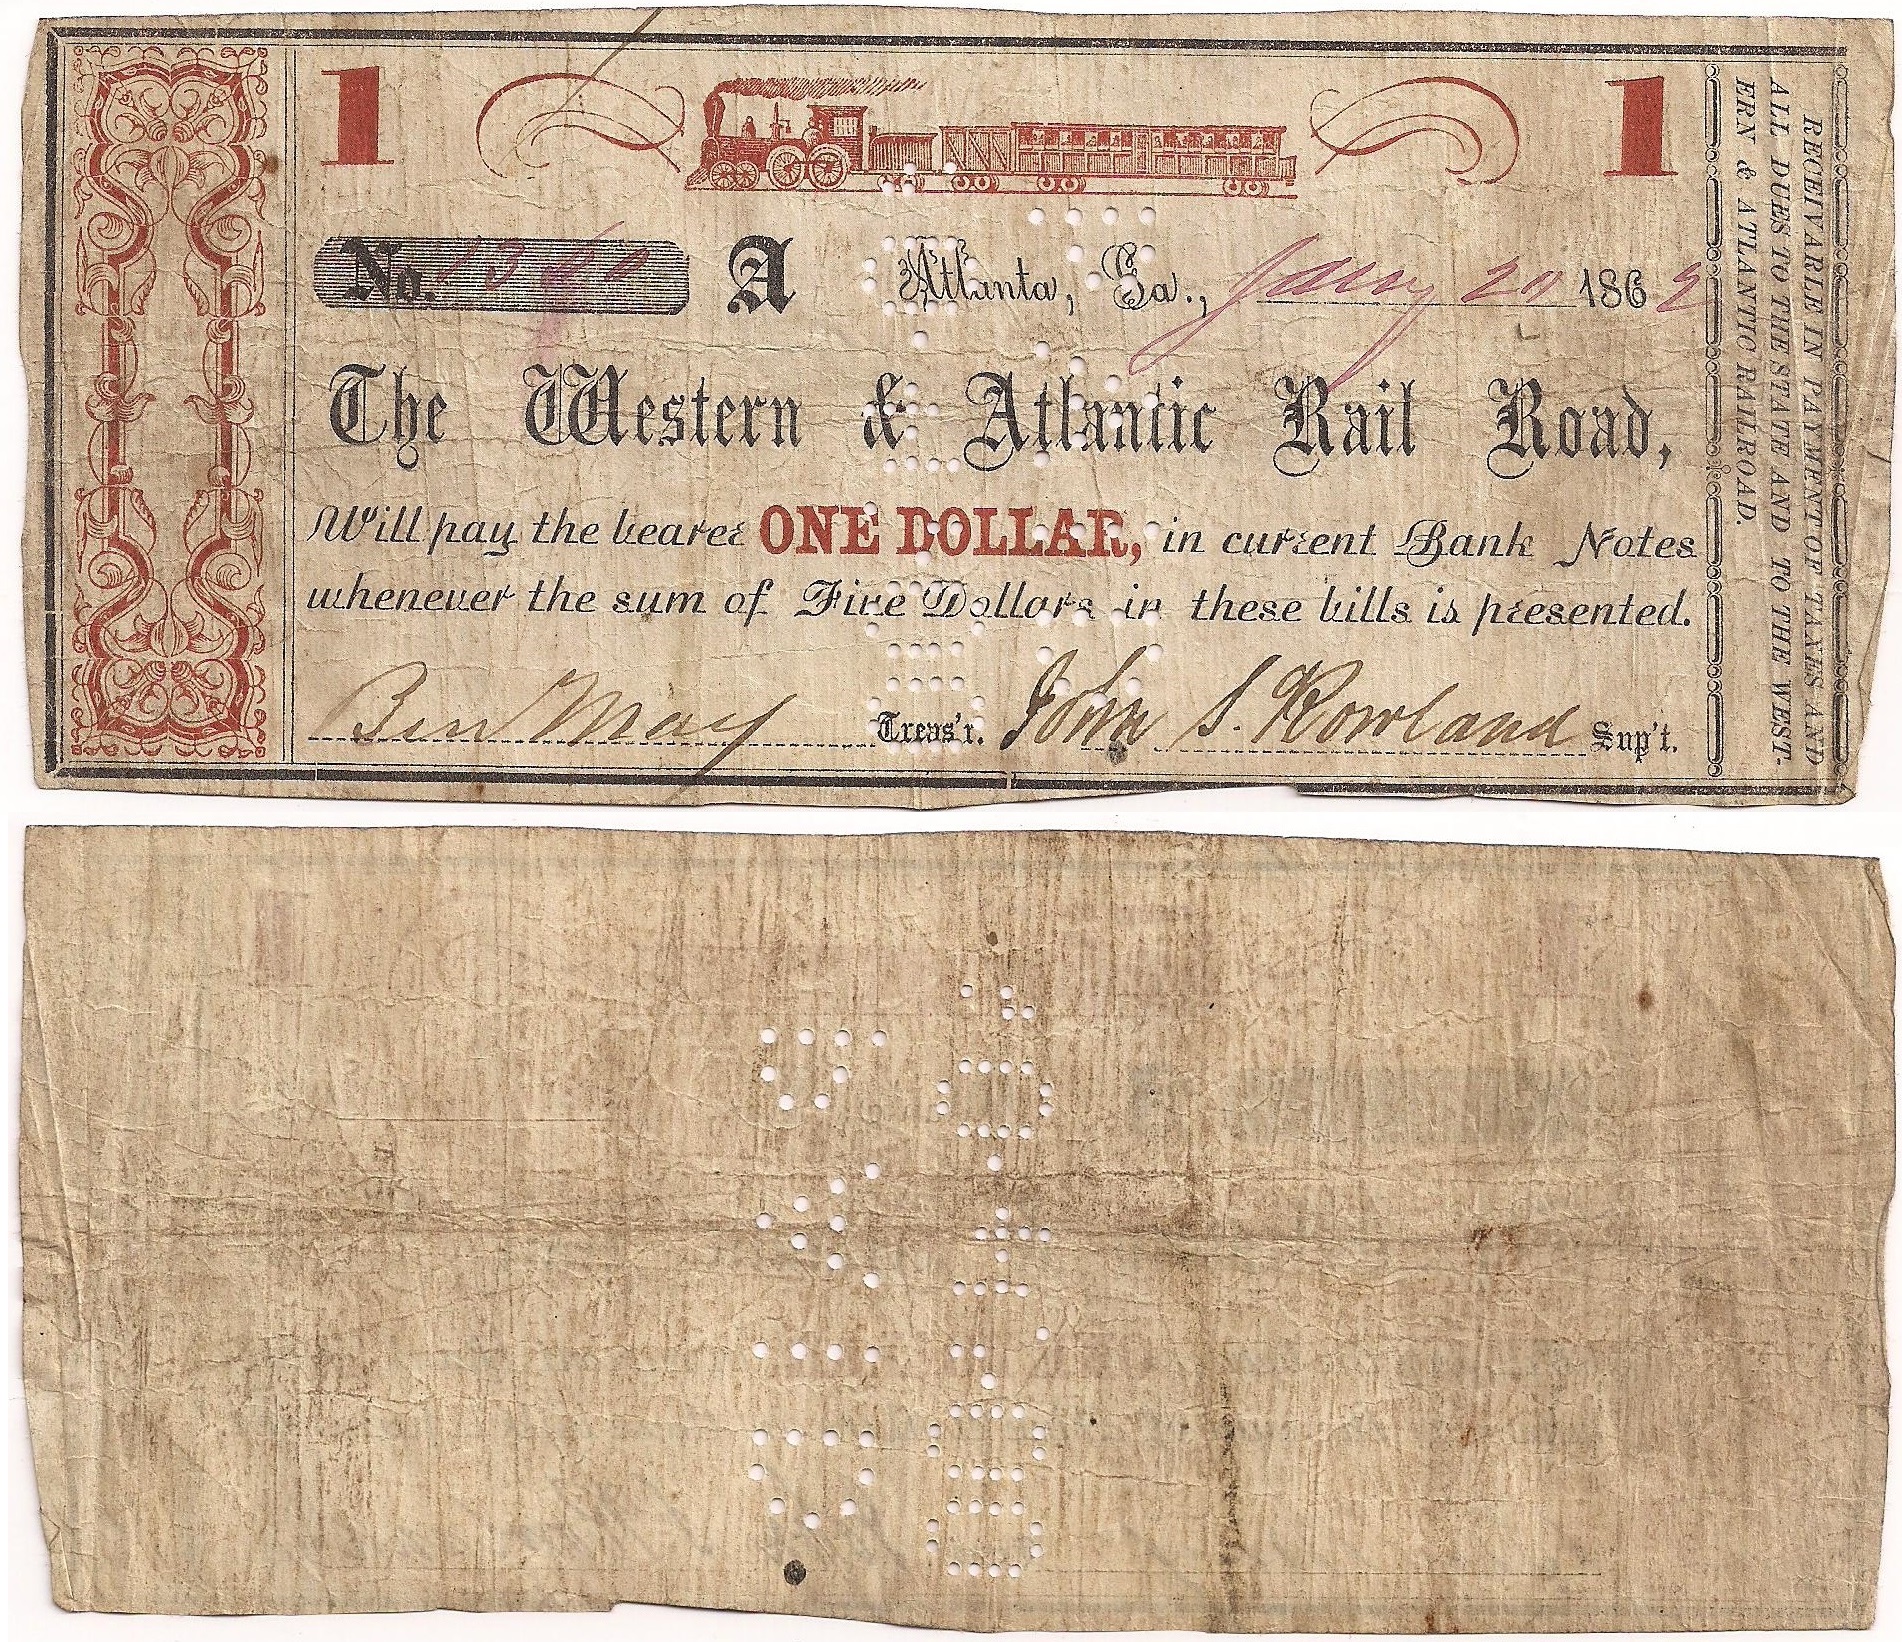 1 1
No. A Atlanta, Ga., 1862
The Western & Atlantic Rail Road,
Will pay the bearer ONE DOLLAR, in current Bank Notes
whenever the sum of Five Dollars in these bills is presented.
Ben May Treas'r. John S. Rowland Sup't.
RECEIVABLE IN PAYMENT OF TAXES AND
ALL DUES TO THE STATE AND TO THE WEST-
ERN & ATLANTIC RAILROAD.